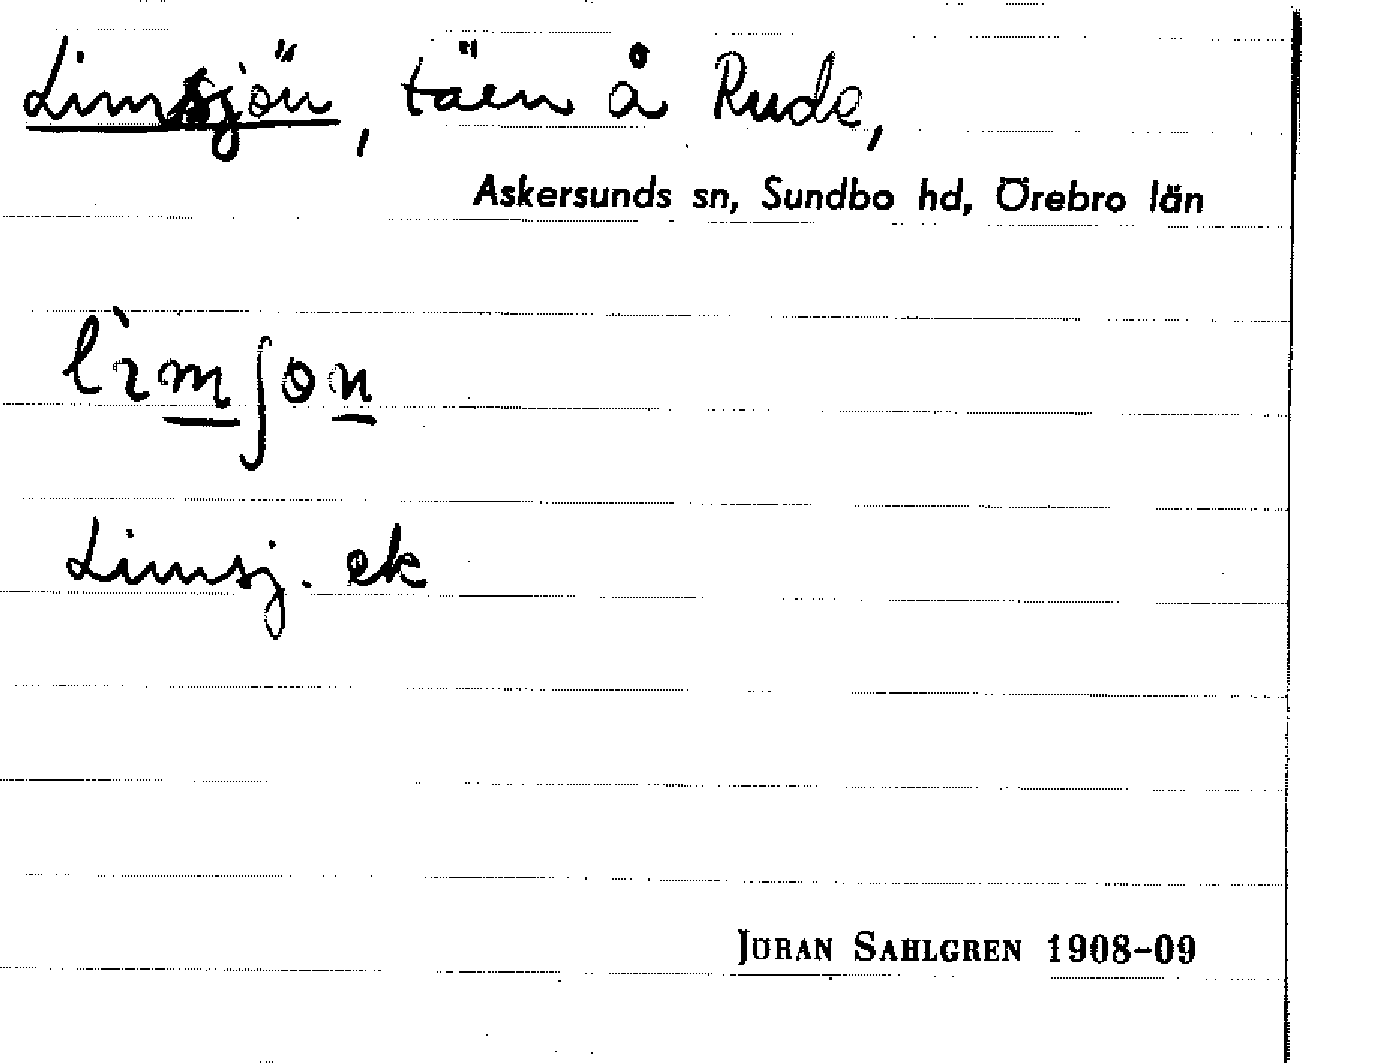 Limsjön, täen å Rude,
Askersunds sn, Sundbo hd, Örebro län
lìmʃon
Limsj. ek
JÖRAN SAHLGREN 1908-09